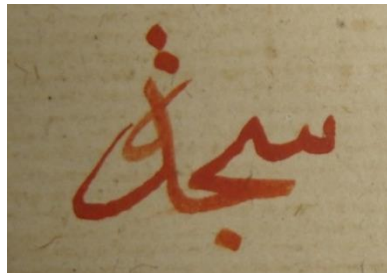 سجدة